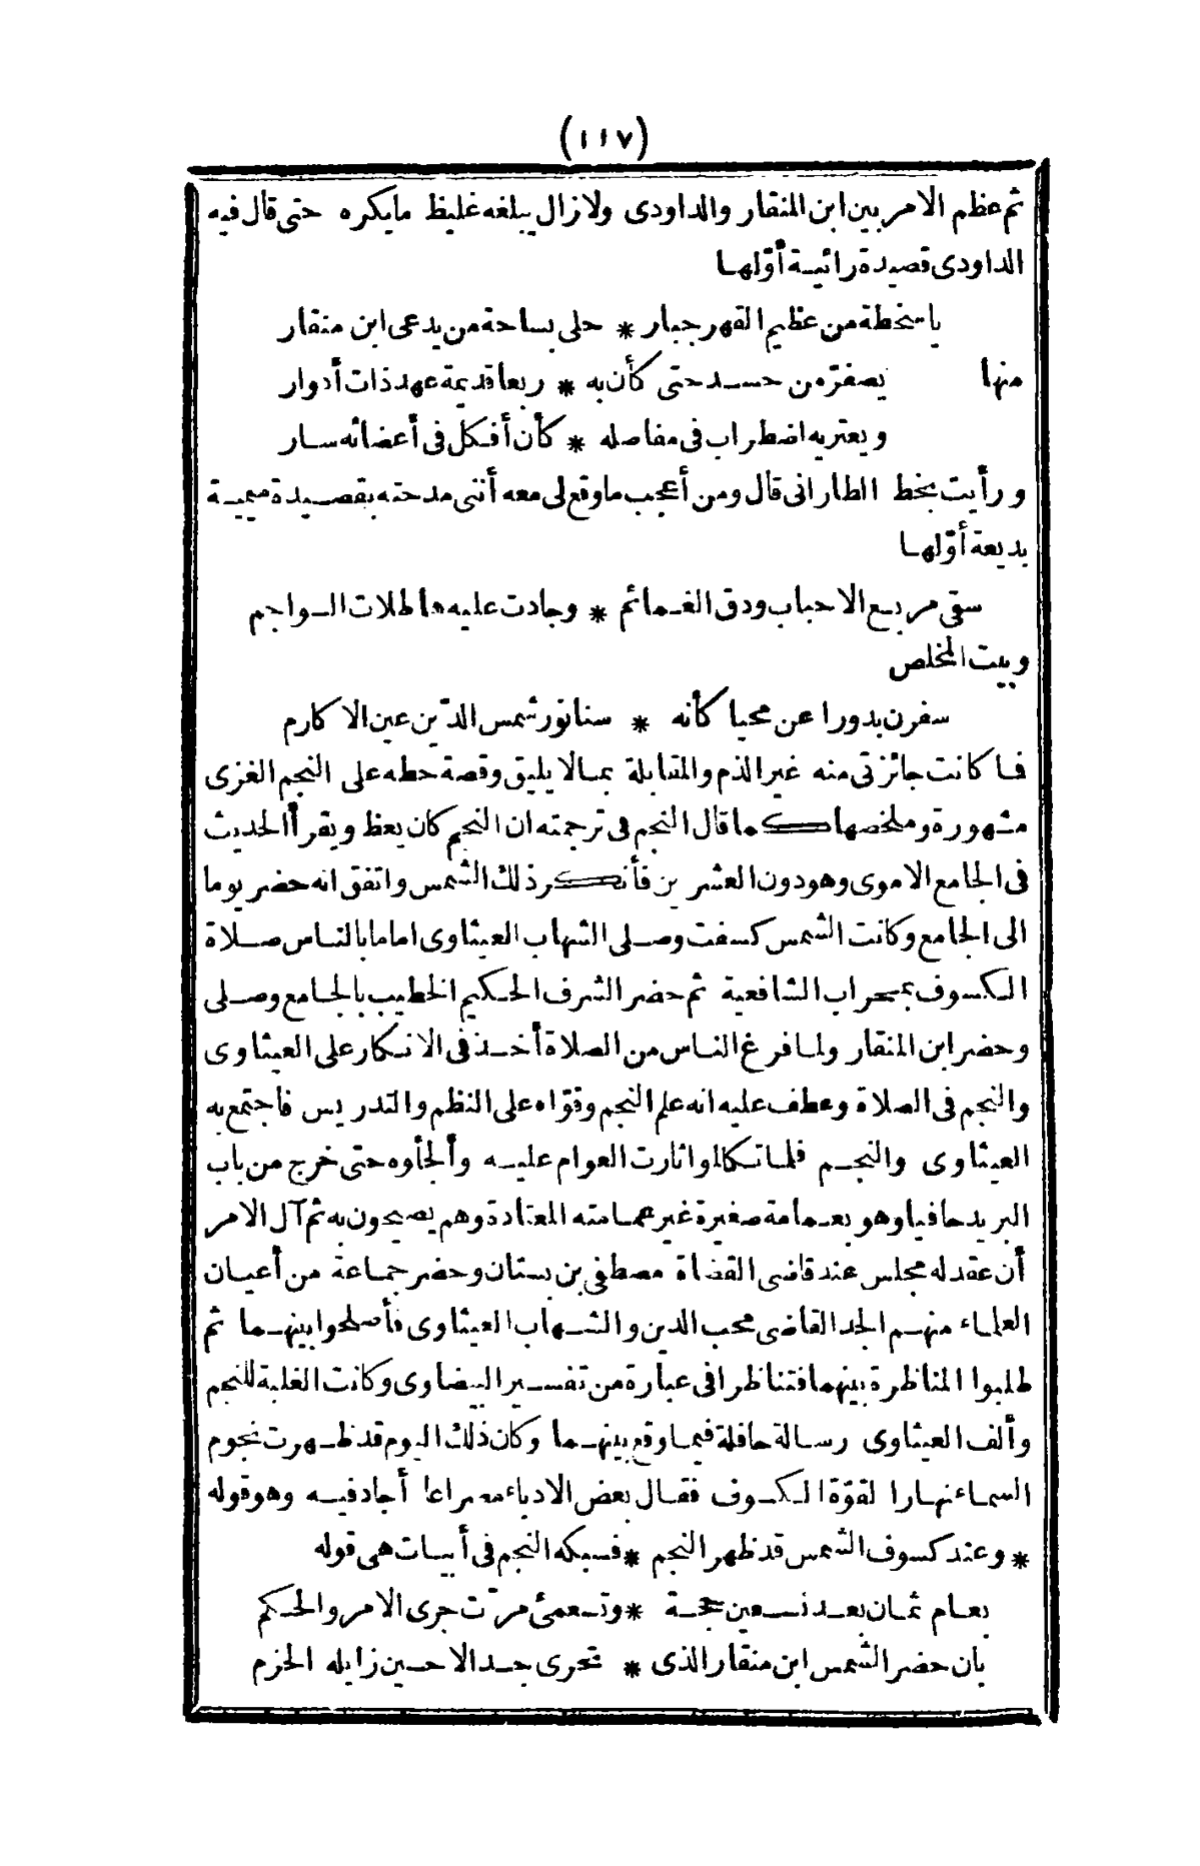 (١١٧)
ثم عظم الامر بين ابن المنقار والداودى ولا زال يبلغه غليظ ما يكره حتى قال فيه
الداودى قصيدة رائية أوّلها
يا سخطة من عظيم القهر جبار * حلى بساحة من يدعى ابن منقار
منها يصفرّ من حسد حتى كأن به * ربعا قديمة عهد ذات أدوار
ويعتريه اضطراب فى مفاصله * كأن أفكل فى أعضائه سار
ورأيت بخط الطارانى قال ومن أعجب ما وقع لى معه أننى مدحته بقصيدة ميمية
بديعة أوّلها
سقى مربع الاحباب ودق الغمائم * وجادت عليه هاطلات السواجم
وبيت المخلص
سفرن بدورا عن محيا كأنه * سنا نور شمس الدّين عين الاكارم
فما كانت جائزتى منه غير الذم والمقابلة بما لا يليق وقصة حطه على النجم الغزى
مشهورة وملخصها كما قال النجم فى ترجمته ان النجم كان يعظ ويقرأ الحديث
فى الجامع الاموى وهو دون العشرين فأنكر ذلك الشمس واتفق انه حضر يوما
الى الجامع وكانت الشمس كسفت وصلى الشهاب العيثاوى اماما بالناس صلاة
الكسوف بمحراب الشافعية ثم حضر الشرف الحكيم الخطيب بالجامع وصلى
وحضر ابن المنقار ولما فرغ الناس من الصلاة أخذ فى الانكار على العيثاوى
والنجم فى الصلاة وعطف عليه انه علم النجم وقوّاه على النظم والتدريس فاجتمع به
العيثاوى والنجم فلما تكالموا ثارت العوام عليه وألجأوه حتى خرج من باب
البريد حافيا وهو بعمامة صغيرة غير عمامته المعتادة وهم يصيحون به ثم آل الامر
أن عقد له مجلس عند قاضى القضاة مصطفى بن بستان وحضر جماعة من أعيان
العلماء منهم الجد القاضى محب الدين والشهاب العيثاوى فأصلحوا بينهما ثم
طلبوا المناظرة بينهما فتناظرا فى عبارة من تفسير البيضاوى وكانت الغلبة للنجم
وألف العيثاوى رسالة حافلة فيما وقع بينهما وكان ذلك اليوم قد ظهرت نجوم
السماء نهارا لقوّة الكسوف فقال بعض الادباء مصراعا أجاد فيه وهو قوله
* وعند كسوف الشمس قد ظهر النجم * فسبكه النجم فى أبيات هى قوله
بعام ثمان بعد تسعين حجة * وتسعمئ مرّت جرى الامر والحكم
بان حضر الشمس ابن منقار الذى * تحرى جدالا حين زايله الحزم